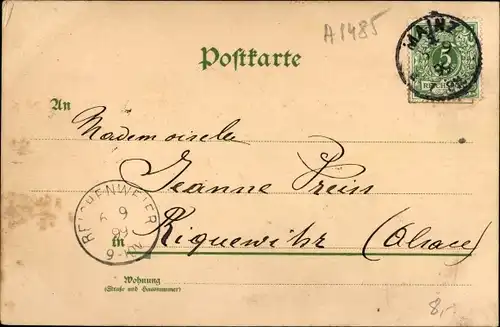 A1485
Postkarte
MAINZ
5
An
Mademoiselle
Jeanne Preiss
REICHENWEIER
9
99
6-7N
in Riquewihr (Alsace)
Wohnung
(Straße und Hausnummer)
8,-